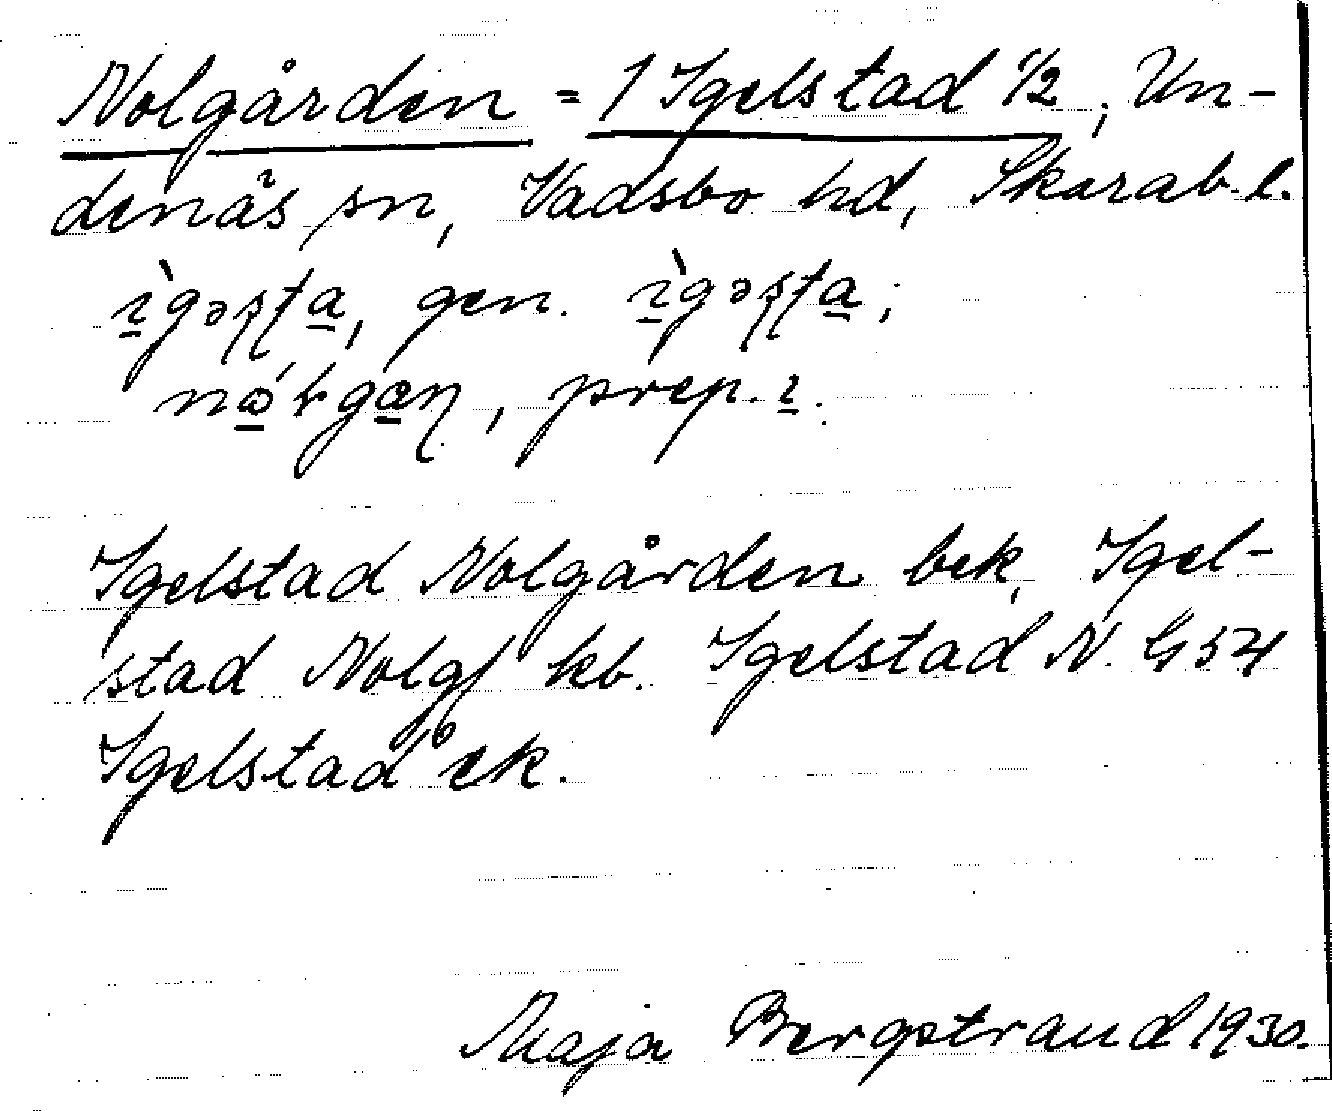 Nolgården = 1 Igelstad 1/2, Un-
denäs sn, Vadsbo hd, Skarab. l.
ìgəʂʈa, gen. ìgəʂʈa;
prep. ɩ.
Igelstad Nolgården bek, Igel-
stad Nolg/ kb. Igelstad N. G 54
Igelstad ek.
Maja Bergstrand 1930.